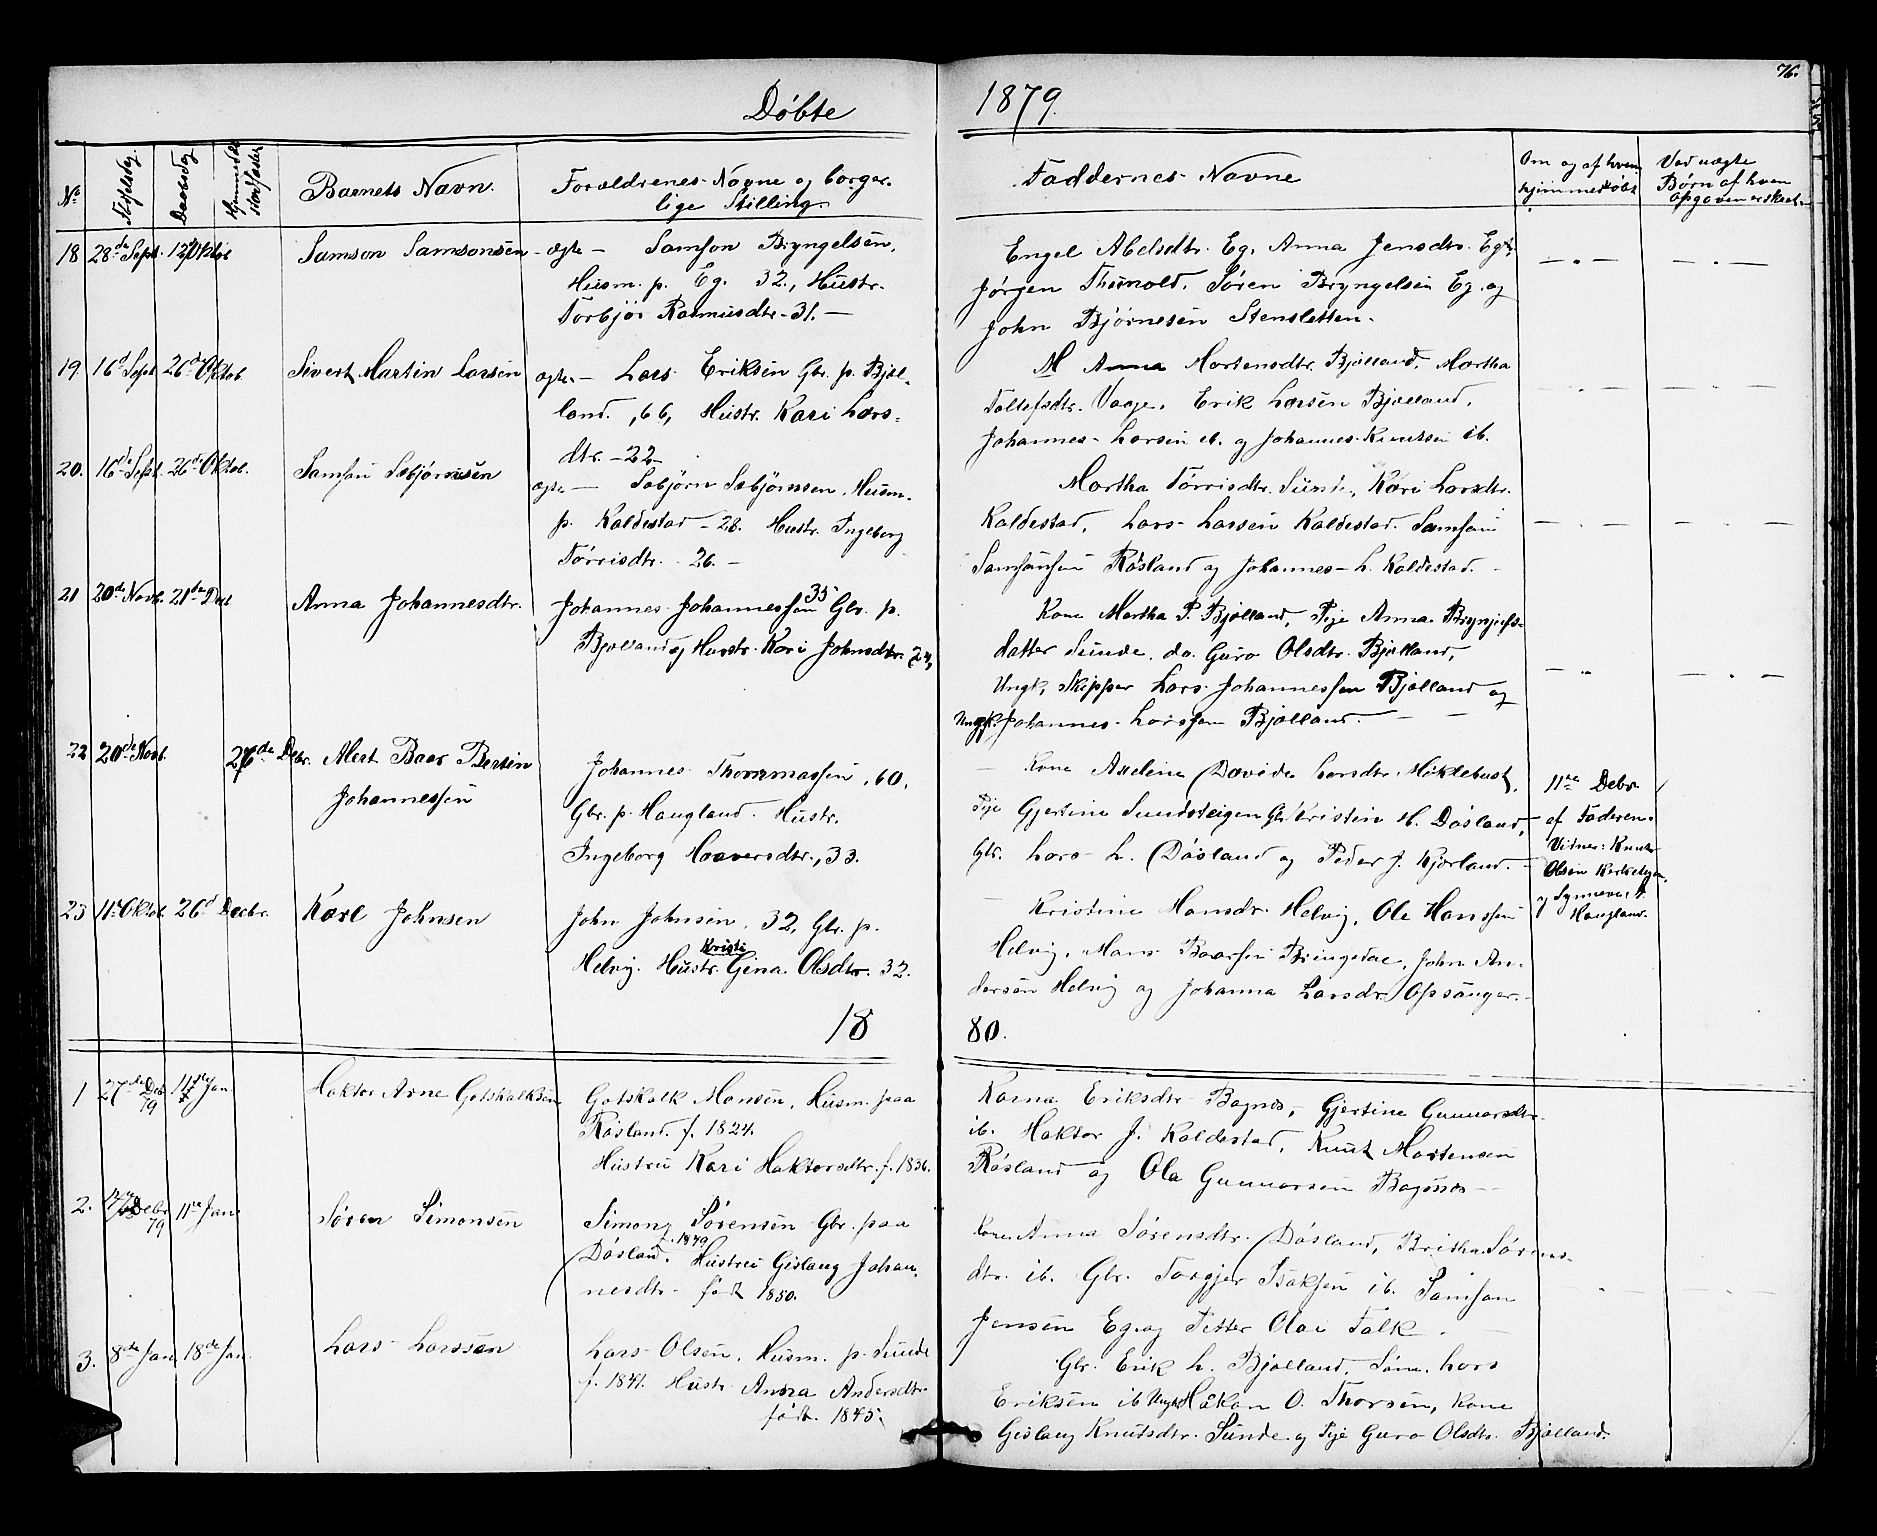 76.
Døbte 1879.
No
Fødselsdag.
Daabsdag
Hjemmedøbt
stadfæstet
Barnets Navn.
Forældrenes Navne og borger-
lige Stilling.
Faddernes Navne
Om og af hvem
hjemmedøbt
Ved uægte
Børn af hvem
opgaven er skeet.
18 28de Sept. 12te Oktob Samson Samsonsen
ægte — Samson Bryngelsen,
Husm. p. Eg. 32., Hustr.
Torbjør Rasmusdtr. 31. —
Engel Abelsdtr. Eg, Anna Jensdtr. Eg,
Jørgen Thunold, Søren Bryngelsen Eg og
John Bjørnesen Stensletten.
19 16d Sept. 26de Oktob. Sivert Martin Larsen
ægte — Lars Eriksen Gbr. p. Bjøl-
land. , 66, Hustr. Kari Lars-
dtr. — 22
M Anna Mortensdtr. Bjølland, Martha
Tollefsdtr. Vaage, Erik Larsen Bjølland,
Johannes Larsen ib. og Johannes Knutsen ib.
20. 16de Sept. 26de Oktob. Samson Sæbjørnsen
ægte — Sæbjørn Sæbjørnsen, Husm.
p. Kaldestad — 28. Hustr. Ingeborg
Tørrisdtr. 26. —
Martha Tørrisdtr. Sunde, Kari Larsdtr.
Kaldestad, Lars Larsen Kaldestad. Samson
Samsonsen Røsland og Johannes L. Kaldestad. —
21 20de Novb. 21de Deb Anna Johannesdtr.
Johannes Johannessen 35 Gbr. p.
Bjølland og Hustr. Kari Johnsdtr. 24,
Kone Martha P. Bjølland, Pige Anna Brynjelfs-
datter Sunde, do. Guro Olsdtr. Bjølland,
Ungk. Skipper Lars Johannessen Bjølland og
Ungk. Johannes Larssen Bjølland. —
22 20de Novb. 26de Debr. Mert Baar Bertin
Johannessen
Johannes Thommassen, 60.
Gbr. p. Haugland. Hustr.
Ingeborg Haaversdtr., 33.
Kone Axeline Davida Larsdtr. Møklebust,
Pige Gjertine Sundsteigen Gbr. Kristen H. Døsland,
Gbr. Lars L. Døsland og Peder J. Kjørland. —
11te Debr.
af Faderen.
Vidner: Knut
Olsen Kirketeigen
og Synneve T.
Haugland.
23 11te Oktob. 26d Decbr. Karl Johnsen
John Johnsen, 32, Gbr. p.
Helvig. Hustr. Kristi Gina Olsdtr. 32.
Kristine Hansdr. Helvig, Ole Hanssen
Helvig, Hans Baarsen Bringedal, John An-
dersen Helvig og Johanna Larsdr. Opsanger. —
1880.
1 27de Deb 79 11te Jan. Haktor Arne Gotskalksen
Gotskalk Monsen, Husm. paa
Røsland. f. 1824.
Hustru Kari Haktorsdtr. f. 1836.
Karna Eriksdtr. Bagnes, Gjertine Gunnarsdtr.
ib. Haktor J. Kaldestad, Knut Mortensen
Røsland og Ola Gunnarsen Bagnes —
2. Debr 79 11te Jan. Søren Simonsen
Simon Sørensen Gbr. paa
Døsland. f. 1849 Hustru Gislaug Johan-
nesdtr. født 1850.
Kone Anna Sørensdtr. Døsland, Britha Sørens-
dtr. ib. Gbr. Torgjer Isaksen ib. Samson
Jensen Eg og Petter Olai Falk. —
3. 8de Jan 18de Jan. Lars Larssen
Lars Olsen, Husm. p. Sunde
f. 1841. Hustr. Anna Andersdtr.
født. 1845.
Gbr. Erik L. Bjølland, Søn Lars
Eriksen ib Ungk. Håkon O. Thorsen, Kone
Gislaug Knutsdtr. Sunde og Pige Guro Olsdtr. Bjølland.